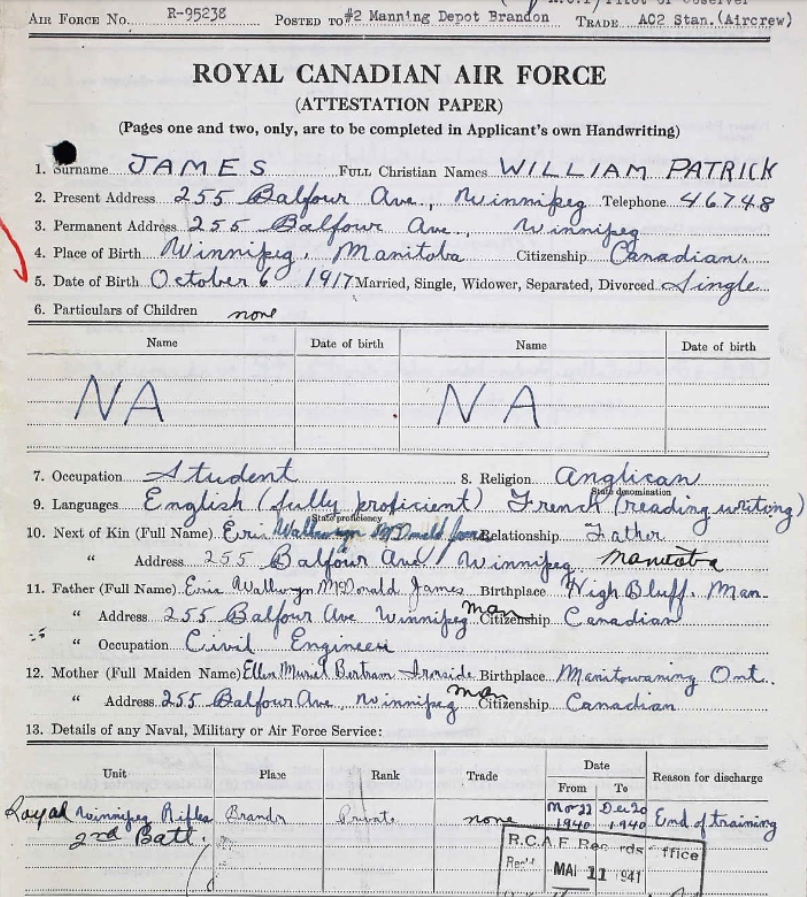 AIR FORCE NO. R-95238 POSTED TO #2 Manning Depot Brandon TRADE AC2 Stan.(Aircrew)
ROYAL CANADIAN AIR FORCE
(ATTESTATION PAPER)
(Pages one and two, only, are to be completed in Applicant's own Handwriting)
1. Surname JAMES FULL Christian Names WILLIAM PATRICK
2. Present Address 255 Balfour Ave., Winnipeg Telephone 46748
3. Permanent Address 255 Balfour Ave., Winnipeg
4. Place of Birth Winnipeg, Manitoba Citizenship Canadian
5. Date of Birth October 6 1917 Married, Single, Widower, Separated, Divorced Single
6. Particulars of Children none
Name Date of birth Name Date of birth
NA NA
7. Occupation Student 8. Religion Anglican
State denomination
9. Languages English (fully proficient) French (reading writing)
State proficiency
10. Next of Kin (Full Name) Eric Wallwyn McDonald James Relationship Father
" Address 255 Balfour Ave Winnipeg Manitoba
11. Father (Full Name) Eric Wallwyn McDonald James Birthplace High Bluff. Man.
" Address 255 Balfour Ave Winnipeg Man Citizenship Canadian
" Occupation Civil Engineer
12. Mother (Full Maiden Name) Ellen Muriel Bertram Ironside Birthplace Manitowaning Ont.
" Address 255 Balfour Ave, Winnipeg Man Citizenship Canadian
13. Details of any Naval, Military or Air Force Service:
Unit Place Rank Trade Date Reason for discharge
From To
Royal Winnipeg Rifles Brandon Private none Nov 22 1940 Dec 20 1940 End of training
2nd Batt.
R.C.A.F. Rec rds ffice
Rec'd MAI 11 1941